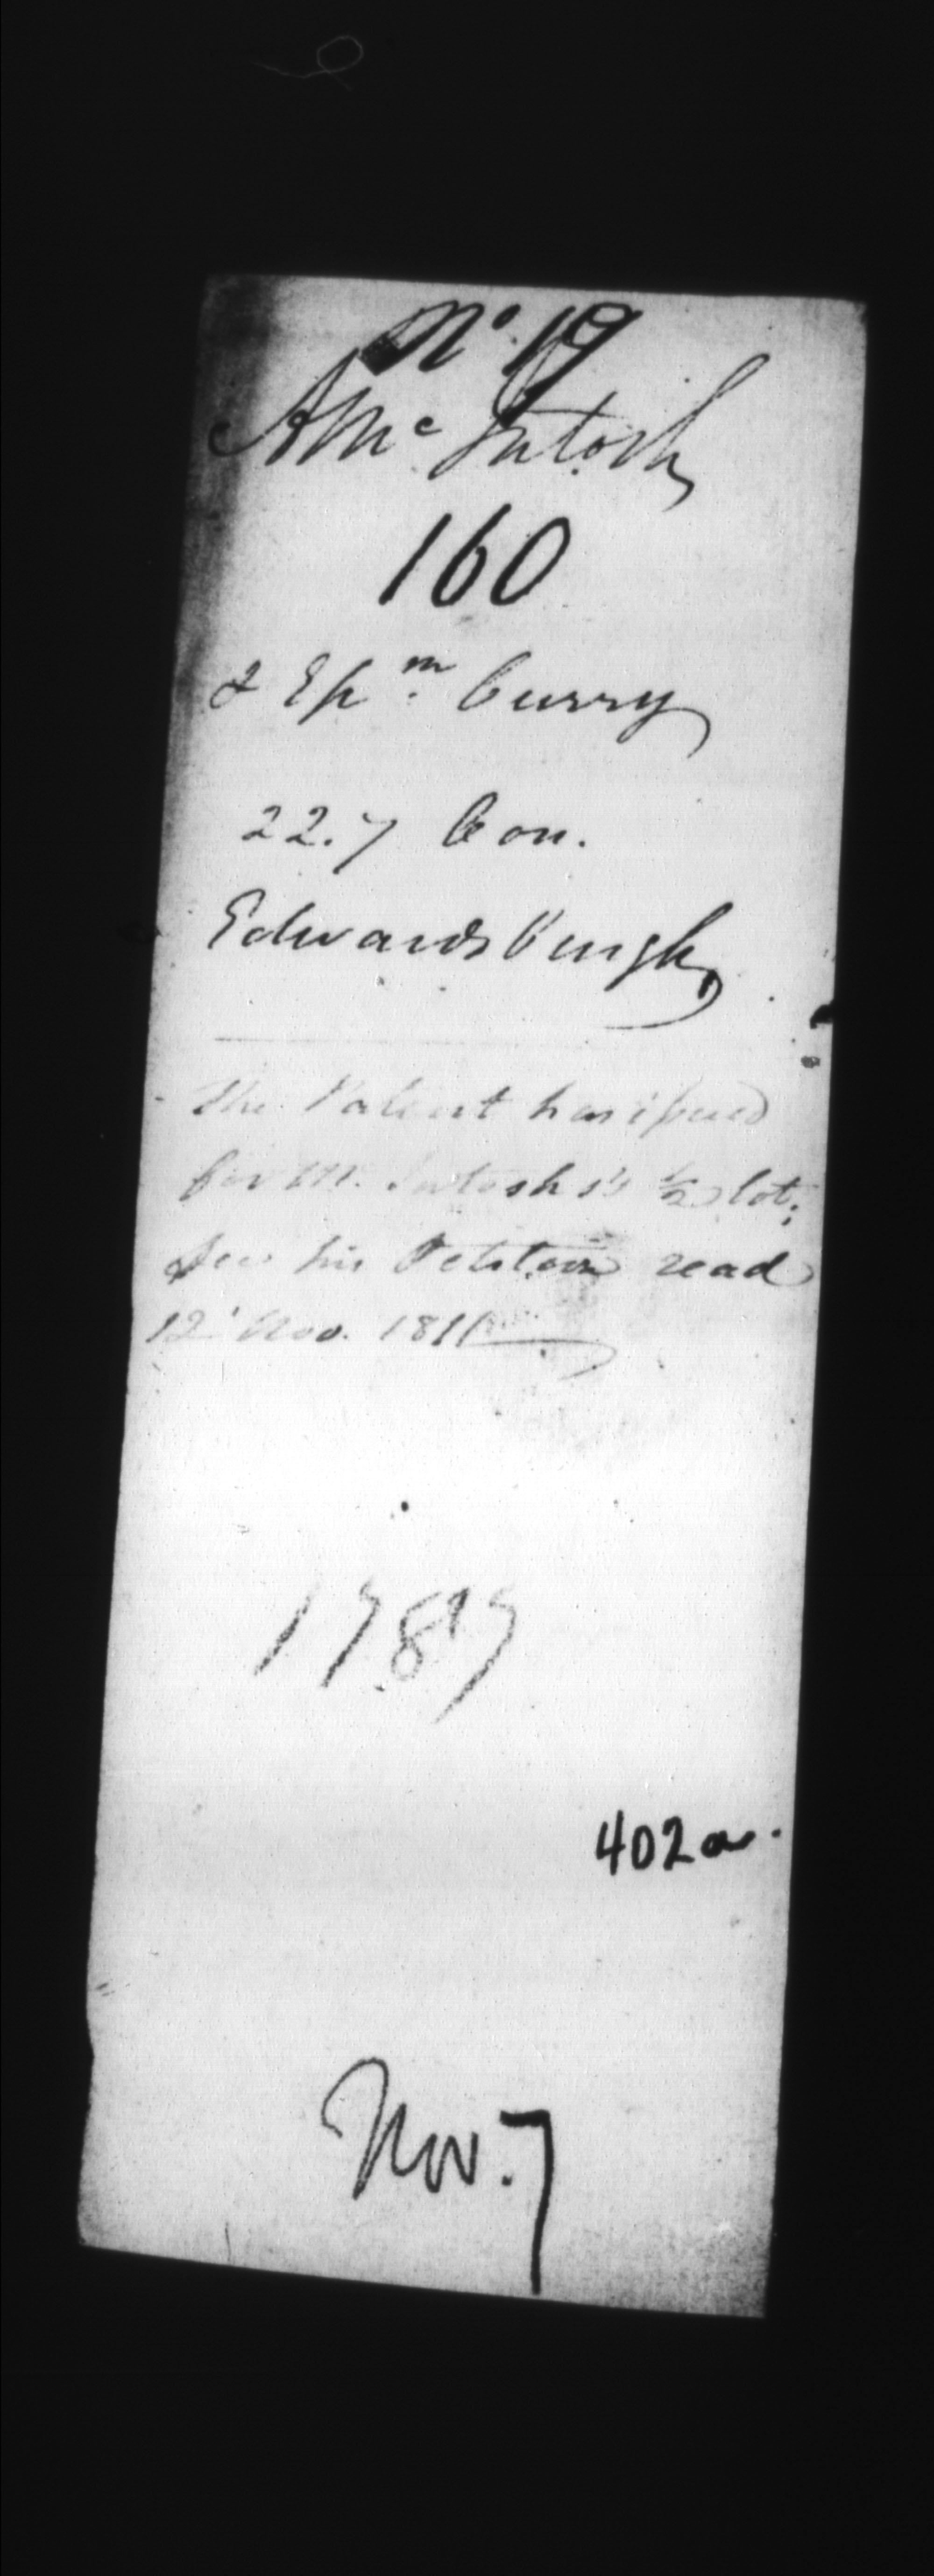 No. 19
A Mc Intosh
160
& Epm. Curry
22.7 Con.
Edwardsburgh
The Patent has issued
for Mc. Intosh's ½ lot;
See his Petition read
12' Nov. 1811
1787
402a.
Nov. 7